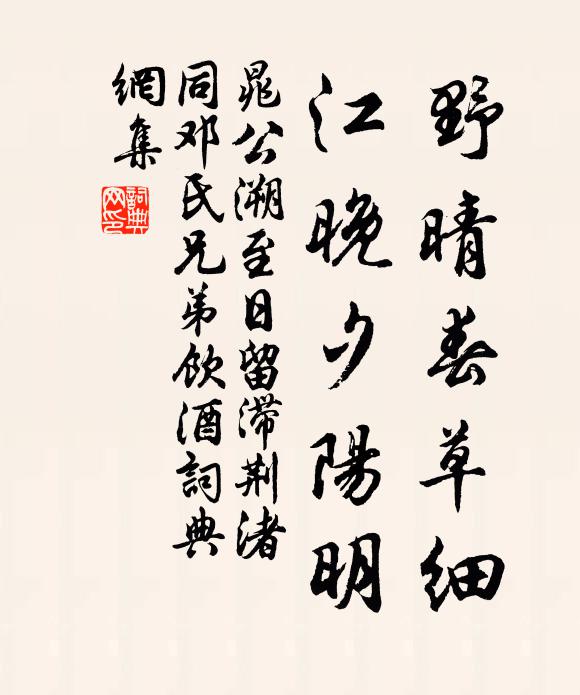 野晴春草細
江晚夕陽明
晁公溯至日留滞荆渚
同邓氏兄弟飲酒詞典
網集
詞典
网印